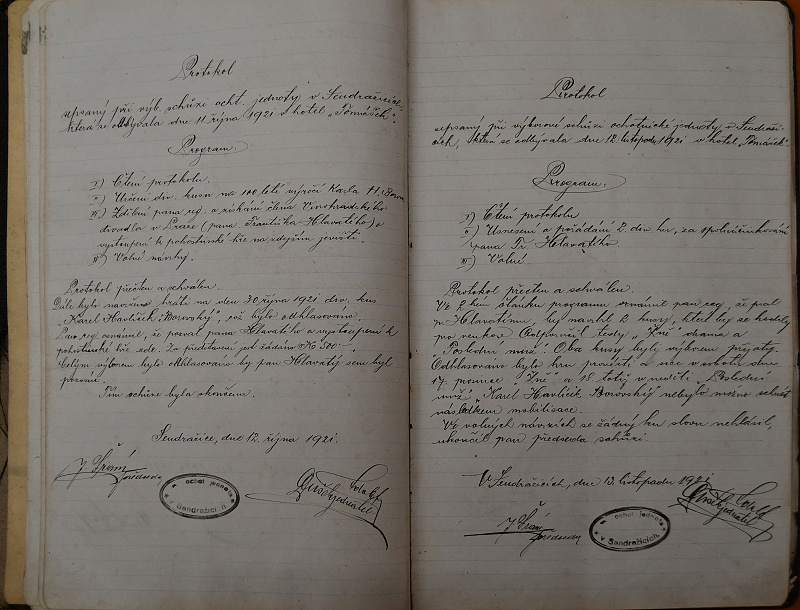 Protokol
sepsaný při výb. schůzi ocht. jednoty v Sendražicích
která se odbývala dne 11. října 1921 v hotel "Tomášek".
Program:
I) Čtení protokolu.
II) Určení div. kusu na 100 letí výročí Karla H. Borov.
III) Zdělení pana reg. o získání člena Vinohradského
divadla v Praze (pana Františka Hlavatého) a
vystoupení k pohostinské hře na zdejším jevišti.
Volné návrhy.
Protokol přečten a schválen.
Dále bylo navrženo hráti na den 30 října 1921 div. kus
"Karel Havlíček Borovský", což bylo odhlasováno.
Pan reg. oznámil, že pozval pana Hlavatého a vystoupení k
pohostinské hře zde. Za představení jest žádáno Kč 500-
Celým výborem bylo odhlasováno by pan Hlavatý sem byl
pozván.
Tím schůze byla skončena.
Sendražice, dne 12. října 1921.
předseda
ochot. jednota
v Sendražicích
jednatel
Protokol
sepsaný při výborové schůzi ochotnické jednoty v Sendraži-
cích, která se odbývala dne 12. listopadu 1921 v hotel "Tomášek".
Program:
I) Čtení protokolu
II) Usnesení a pořádání 2. div. her, za spoluúčinkování
pana Fr. Hlavatého.
III) Volné
Protokol přečten a schválen.
Ve 2 hém článku programu oznámil pan reg. že psal
p. Hlavatému, by navrhl 2 kusy, které by se hodily
pro venkov. Odpověděl tedy "Zně" drama a
"Poslední muž". Oba kusy byly výborem přijaty.
Odhlasováno bylo hru provésti, a sice v sobotu dne
17. prosince "Zně" a 18. totéž v neděli "Poslední
muž". "Karel Havlíček Borovský" nebylo možno sehrát
následkem mobilisace.
Ve volných návrzích se žádný ku slovu nehlásil,
ukončil pan předseda schůzi.
V Sendražicích, dne 13. listopadu 1921
předseda
ochot. jednota
v Sendražicích
jednatel